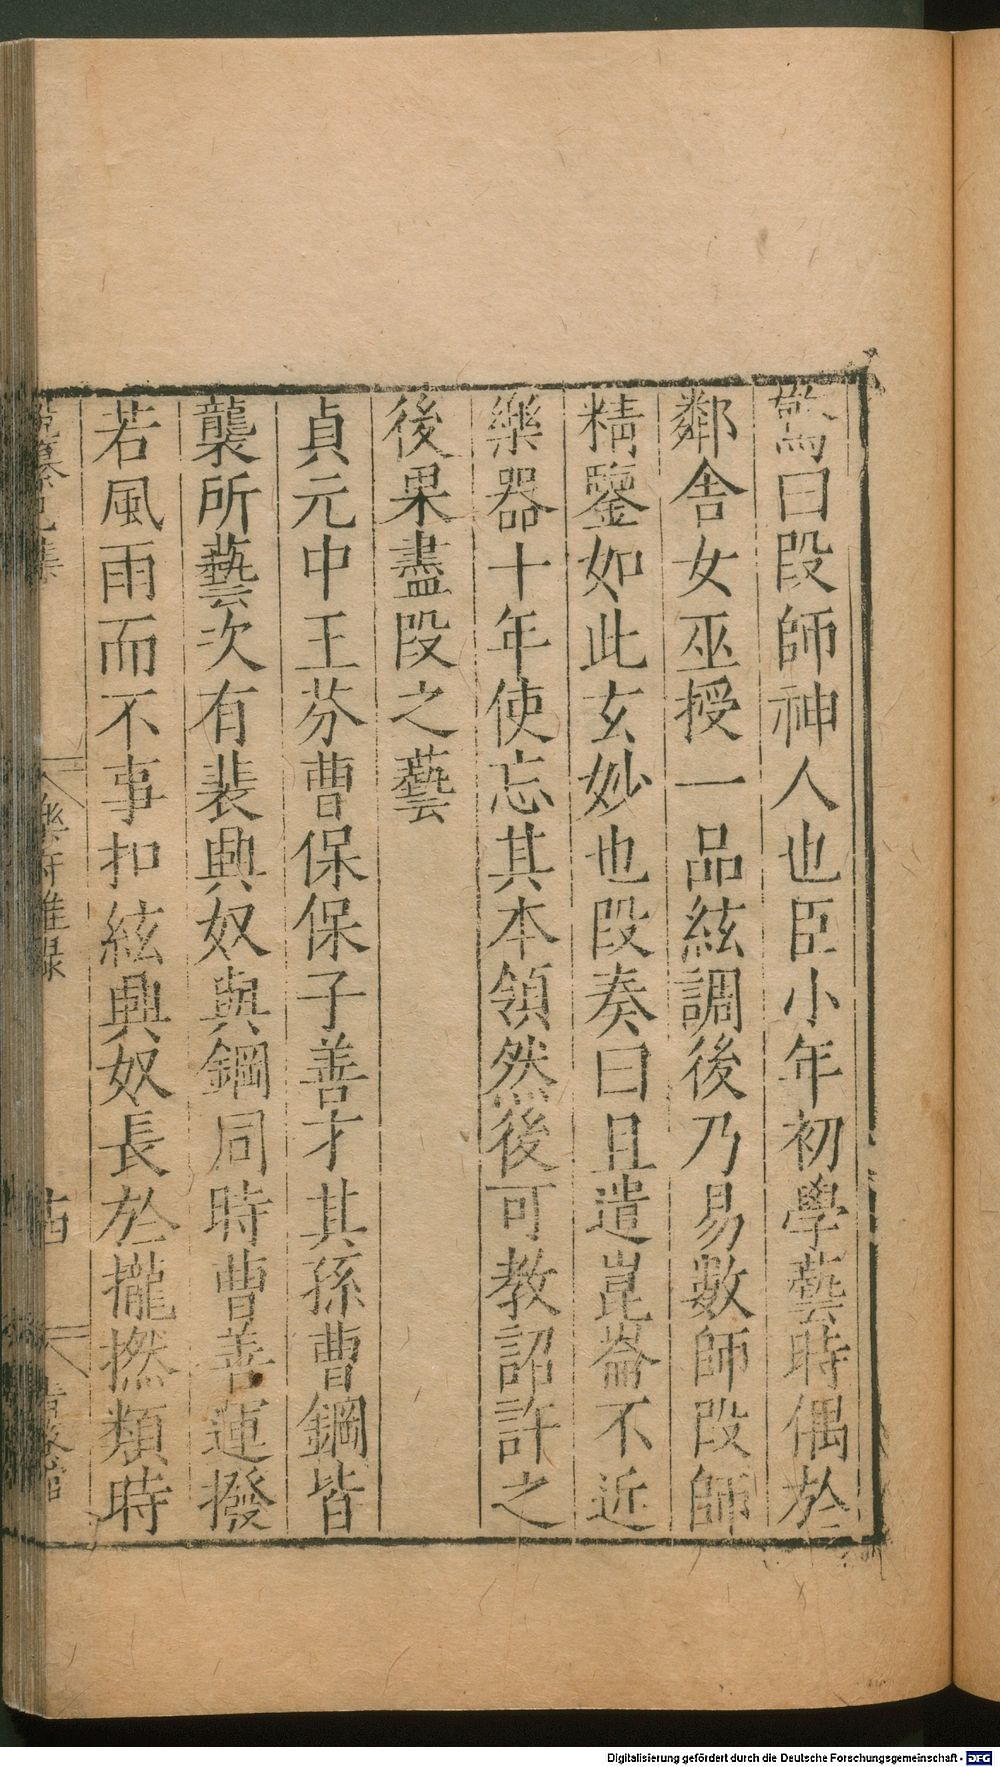 驚曰段師神人也臣小年初學藝時偶於
鄰舍女巫授一品絃調後乃易數師段師
精鑒如此玄妙也段奏曰且遣崑崙不近
樂器十年使忘其本領然後可教詔許之
後果盡段之藝
貞元中王芬曹保保子善才其孫曹鋼皆
襲所藝次有裴興奴與鋼同時曹善運撥
若風雨而不事扣絃興奴長於攏撚類時
樂府雜錄
Digitalisierung gefördert durch die Deutsche Forschungsgemeinschaft - DFG